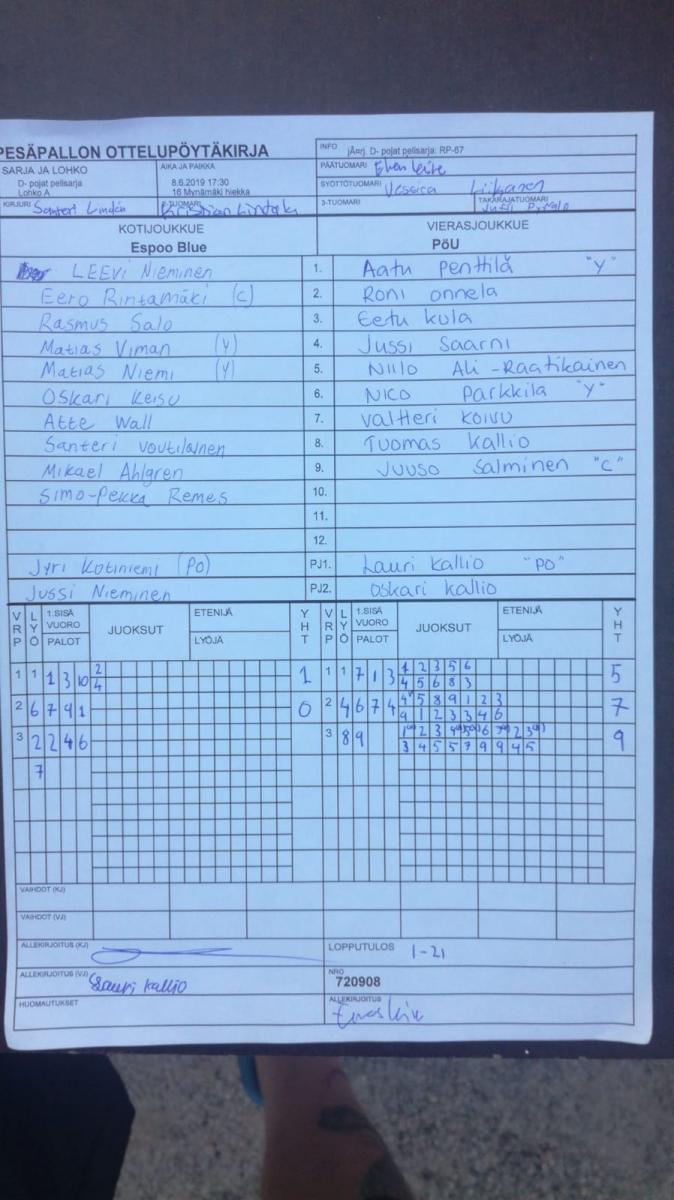 PESÄPALLON OTTELUPÖYTÄKIRJA
INFO jÄ¤rj. D- pojat pelisarja: RP-67
SARJA JA LOHKO
D- pojat pelisarja
Lohko A
AIKA JA PAIKKA
8.6.2019 17:30
16 Mynämäki hiekka
PÄÄTUOMARI
SYÖTTÖTUOMARI
KIRJURI Santeri Lindén
2-TUOMARI Kristian Lintala
3-TUOMARI
TAKARAJATUOMARI
KOTIJOUKKUE
Espoo Blue
VIERASJOUKKUE
PöU
LEEVi Nieminen 1. Aatu Penttilä "Y"
Eero Rintamäki (c) 2. Roni onnela
Rasmus Salo 3. Eetu kula
Matias Viman (Y) 4. Jussi Saarni
Matias Niemi (Y) 5. Niilo Ali-Raatikainen
Oskari Keisu 6. Nico Parkkila "Y"
Atte Wall 7. Valtteri Koivu
Santeri Voutilainen 8. Tuomas Kallio
Mikael Ahlgren 9. Juuso Salminen "C"
Simo-Pekka Remes 10.
11.
12.
Jyri Kotiniemi (PO) PJ1. Lauri Kallio "PO"
Jussi Nieminen PJ2. Oskari Kallio
VRP LYÖ 1.SISÄ VUORO PALOT JUOKSUT ETENIJÄ LYÖJÄ YHT VRP LYÖ 1.SISÄ VUORO PALOT JUOKSUT ETENIJÄ LYÖJÄ YHT
1 1 1 3 10 2 1 1 1 7 1 3 1 2 3 5 6 5
4 4 5 6 8 3
2 6 7 9 1 0 2 4 6 7 4 4 5 8 9 1 2 3 7
9 1 2 3 3 4 6
3 2 2 4 6 3 8 9 9
3 4 5 5 7 9 9 4 5
7
VAIHDOT (KJ)
VAIHDOT (VJ)
ALLEKIRJOITUS (KJ)
LOPPUTULOS 1-21
ALLEKIRJOITUS (VJ) Lauri Kallio
NRO
720908
HUOMAUTUKSET
ALLEKIRJOITUS